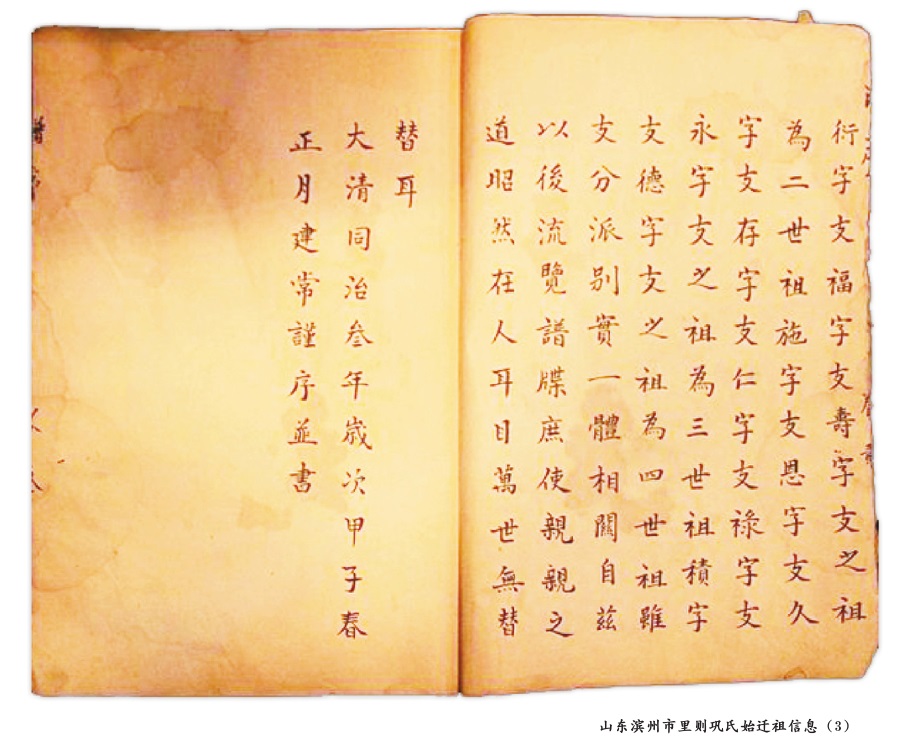 衍字支福字支壽字支之祖
為二世祖施字支恩字支久
字支存字支仁字支祿字支
永字支之祖為三世祖積字
支德字支之祖為四世祖雖
支分派別實一體相關自茲
以後流覽譜牒庶使親親之
道昭然在人耳目萬世無替
替耳
大清同治叁年歲次甲子春
正月建常謹序並書
山东滨州市里则巩氏始迁祖信息（3）